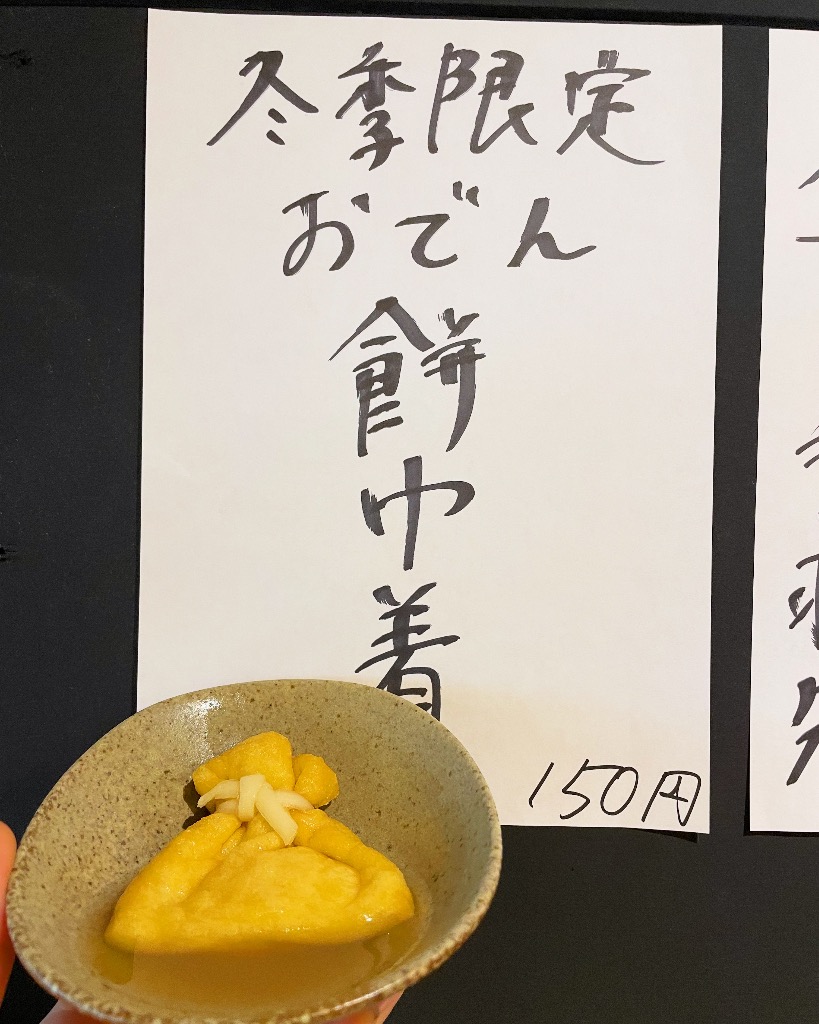 冬季限定
おでん
餅巾着
150円